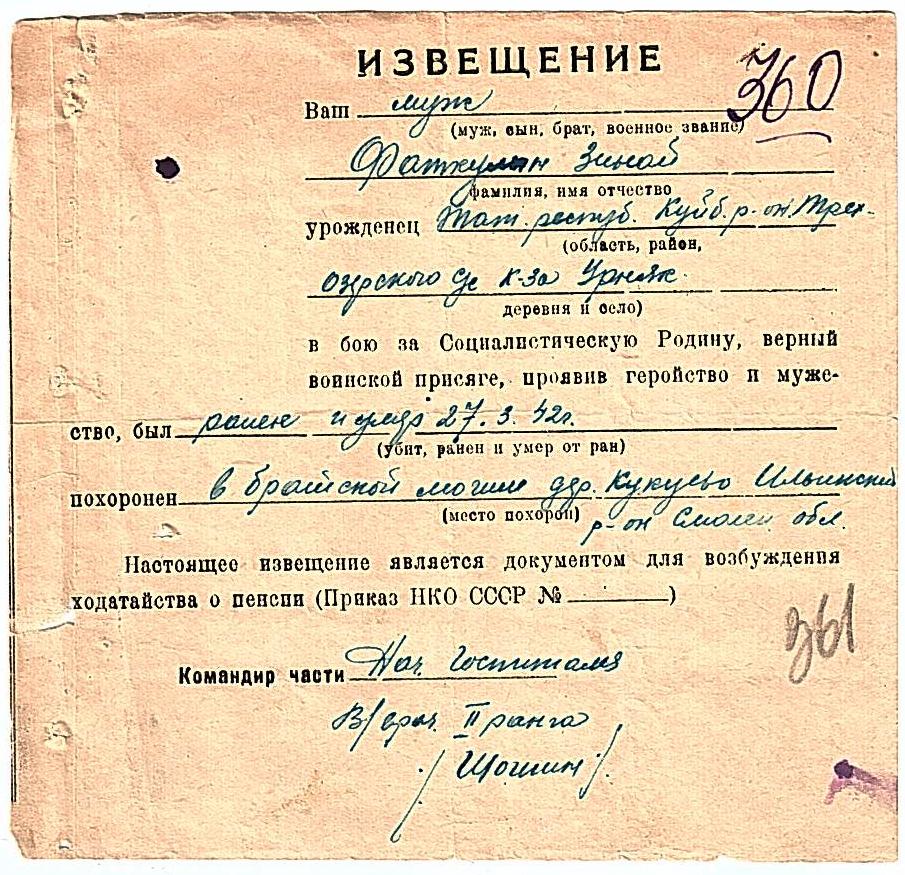 ИЗВЕЩЕНИЕ
360
Ваш муж
(муж, сын, брат, военное звание)
Фаткулин Зинай
фамилия, имя отчество
урожденец Тат. респуб. Куйб. р-он. Трех-
(область, район,
озерского с/с к-за Урняк.
деревня и село)
в бою за Социалистическую Родину, верный
воинской присяге, проявив геройство и муже-
ство, был ранен и умер 27.3.42г.
(убит, ранен и умер от ран)
похоронен в братской могиле дер. Кукуево Ильинский
(место похорон) р-он Смолен. обл.
Настоящее извещение является документом для возбуждения
ходатайства о пенсии (Приказ НКО СССР № )
361
Командир части Нач. Госпиталя
В/врач. II ранга
/Шошин/